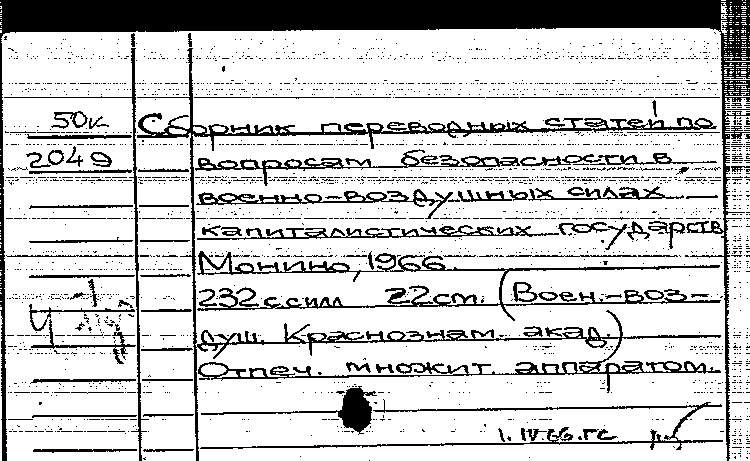 50к Сборник переводных статей по
2049 вопросам безопасности в
военно-воздушных силах
капиталистических государств
Монино, 1966.
232 с с илл 22 см. (Воен.-воз-
душ. Краснознам. акад.)
Отпеч. множит. аппаратом.
1. IV 66. ГС